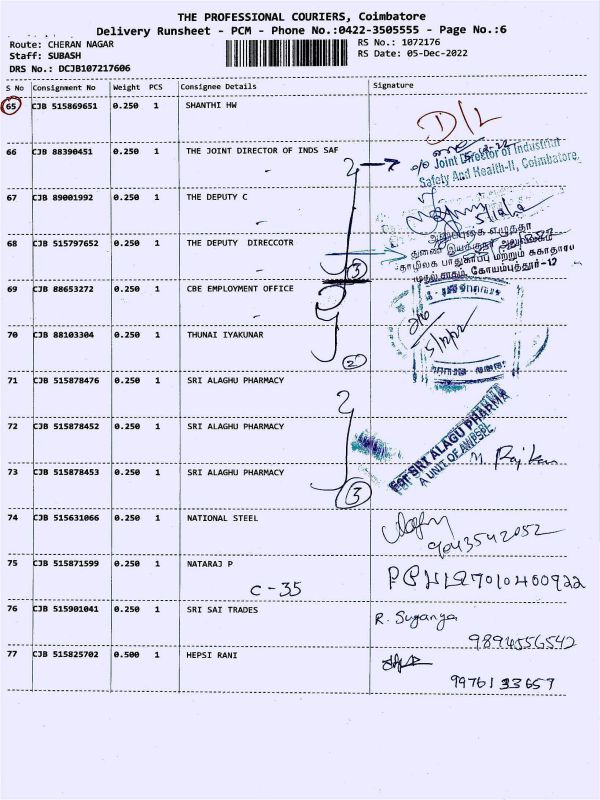 THE PROFESSIONAL COURIERS, Coimbatore
Delivery Runsheet - PCM - Phone No.:0422-3505555 - Page No.:6
Route: CHERAN NAGAR RS No.: 1072176
Staff: SUBASH RS Date: 05-Dec-2022
DRS No.: DCJB107217606
S No Consignment No Weight PCS Consignee Details Signature
65 CJB 515869651 0.250 1 SHANTHI HW D/L
66 CJB 88390451 0.250 1 THE JOINT DIRECTOR OF INDS SAF
o/o Joint Director of Industrial
Safety And Health-II, Coimbatore
67 CJB 89001992 0.250 1 THE DEPUTY C
68 CJB 515797652 0.250 1 THE DEPUTY DIRECCOTR
துணை இயக்குநர் அலுவலகம்
தொழிலக பாதுகாப்பு மற்றும் சுகாதாரம்
கோயம்புத்தூர்-12
3
69 CJB 88653272 0.250 1 CBE EMPLOYMENT OFFICE
70 CJB 88103304 0.250 1 THUNAI IYAKUNAR
5/12/22
2
71 CJB 515878476 0.250 1 SRI ALAGHU PHARMACY
72 CJB 515878452 0.250 1 SRI ALAGHU PHARMACY
For SRI ALAGU PHARMA
A UNIT OF AWPSPL
73 CJB 515878453 0.250 1 SRI ALAGHU PHARMACY
3
74 CJB 515631066 0.250 1 NATIONAL STEEL
9043542052
75 CJB 515871599 0.250 1 NATARAJ P
C-35
7010400922
76 CJB 515901041 0.250 1 SRI SAI TRADES R. Suganya
9894556542
77 CJB 515825702 0.500 1 HEPSI RANI
9976133657